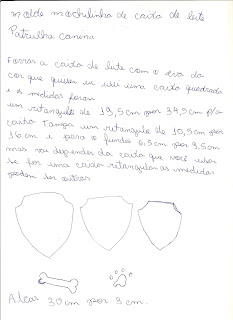 molde mochilinha de caixa de leite
Patrulha canina
Forrar a caixa de leite com o eva da
cor que quiser eu usei uma caixa quadrada
e as medidas foram
um retangulo de 19,5cm por 34,5cm p/a
caixa tampa um retangulo de 10,5cm por
16cm e para o fundo 6,5cm por 9,5cm
mas vai depender da caixa que você usar
se for uma caixa retangular as medidas
podem ser outras
Alças 30cm por 3cm.